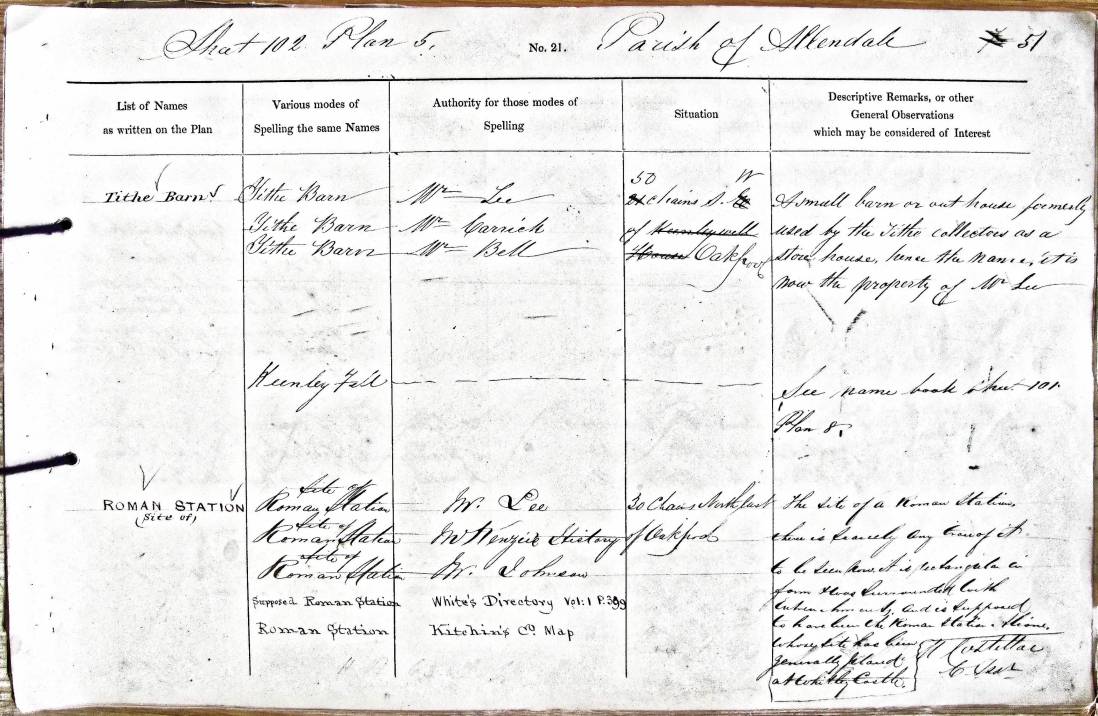 Sheet 102 Plan 5. No. 21. Parish of Allendale 51
List of Names
as written on the Plan
Various modes of
Spelling the same Names
Authority for those modes of
Spelling
Situation
Descriptive Remarks, or other
General Observations
which may be considered of Interest
Tithe Barn
Tithe Barn
Tithe Barn
Tithe Barn
Mr Lee
Mr Carrick
Mr Bell
50 W
chains S.
of
House Oakpool
A small barn or out house formerly
used by the Tithe collectors as a
store house, hence the name, it is
now the property of Mr Lee
Keenley Fell
See name book Sheet 101
Plan 8.
ROMAN STATION
(Site of)
Site of
Roman Station
Site of
Roman Station
Site of
Roman Station
Supposed Roman Station
Roman Station
Mr. Lee
McKenzie History
Mr. Johnson
White's Directory Vol: 1 P. 399
Kitchin's Co Map
30 Chains North East
of Oakpool
The Site of a Roman Station,
there is scarcely any trace of it
to be seen now, it is rectangular in
form & was surrounded with
entrenchments, and is supposed
to have been the Roman Station Alione
whose site has been
generally placed
at Whitley Castle.